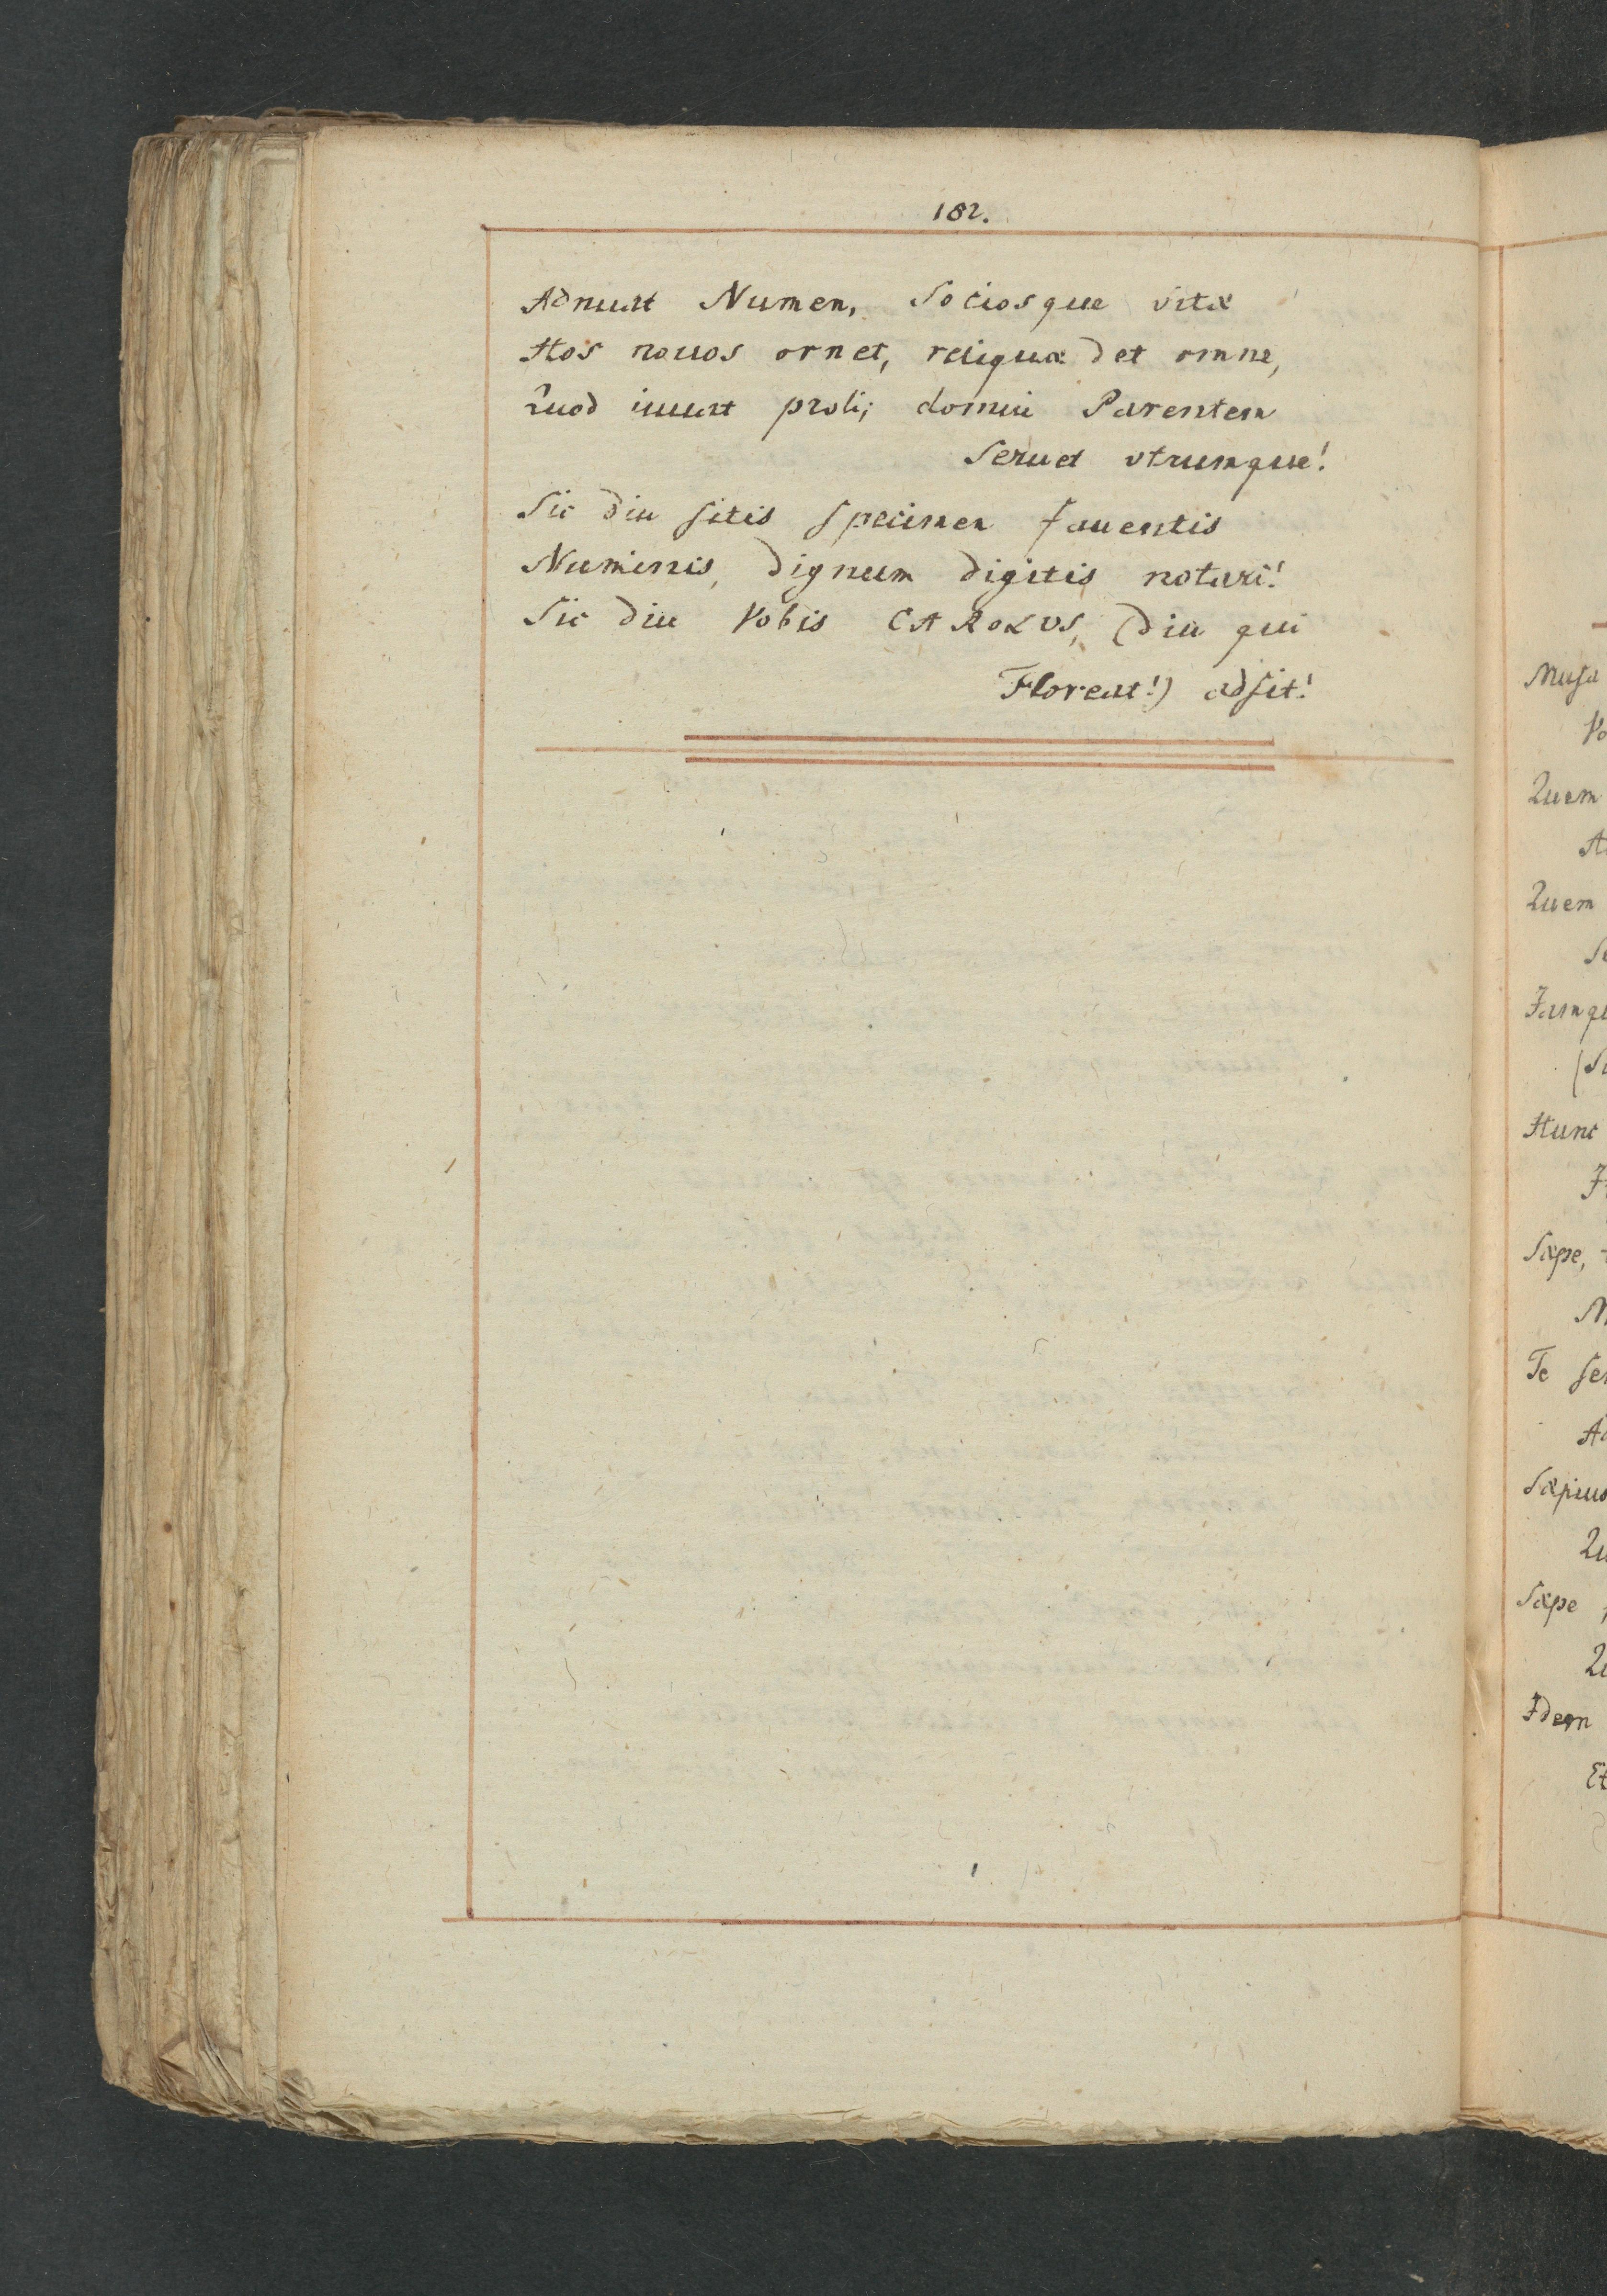 182.
Adnuat Numen, Sociosque vitæ
Hos nouos ornet, reliquæ det omne,
Quod iuuat proli; domui Parentem
Seruet vtrumque!
Sic diu sitis specimen fauentis
Numinis, dignum digitis notari!
Sic diu Vobis CAROLVS, (diu qui
Floreat!) adsit!
Musa
Vo
Quem
Quem
Jamqu
Hunc
Sæpe,
Te se
Sæpius
Qu
Sæpe
Idem
Et